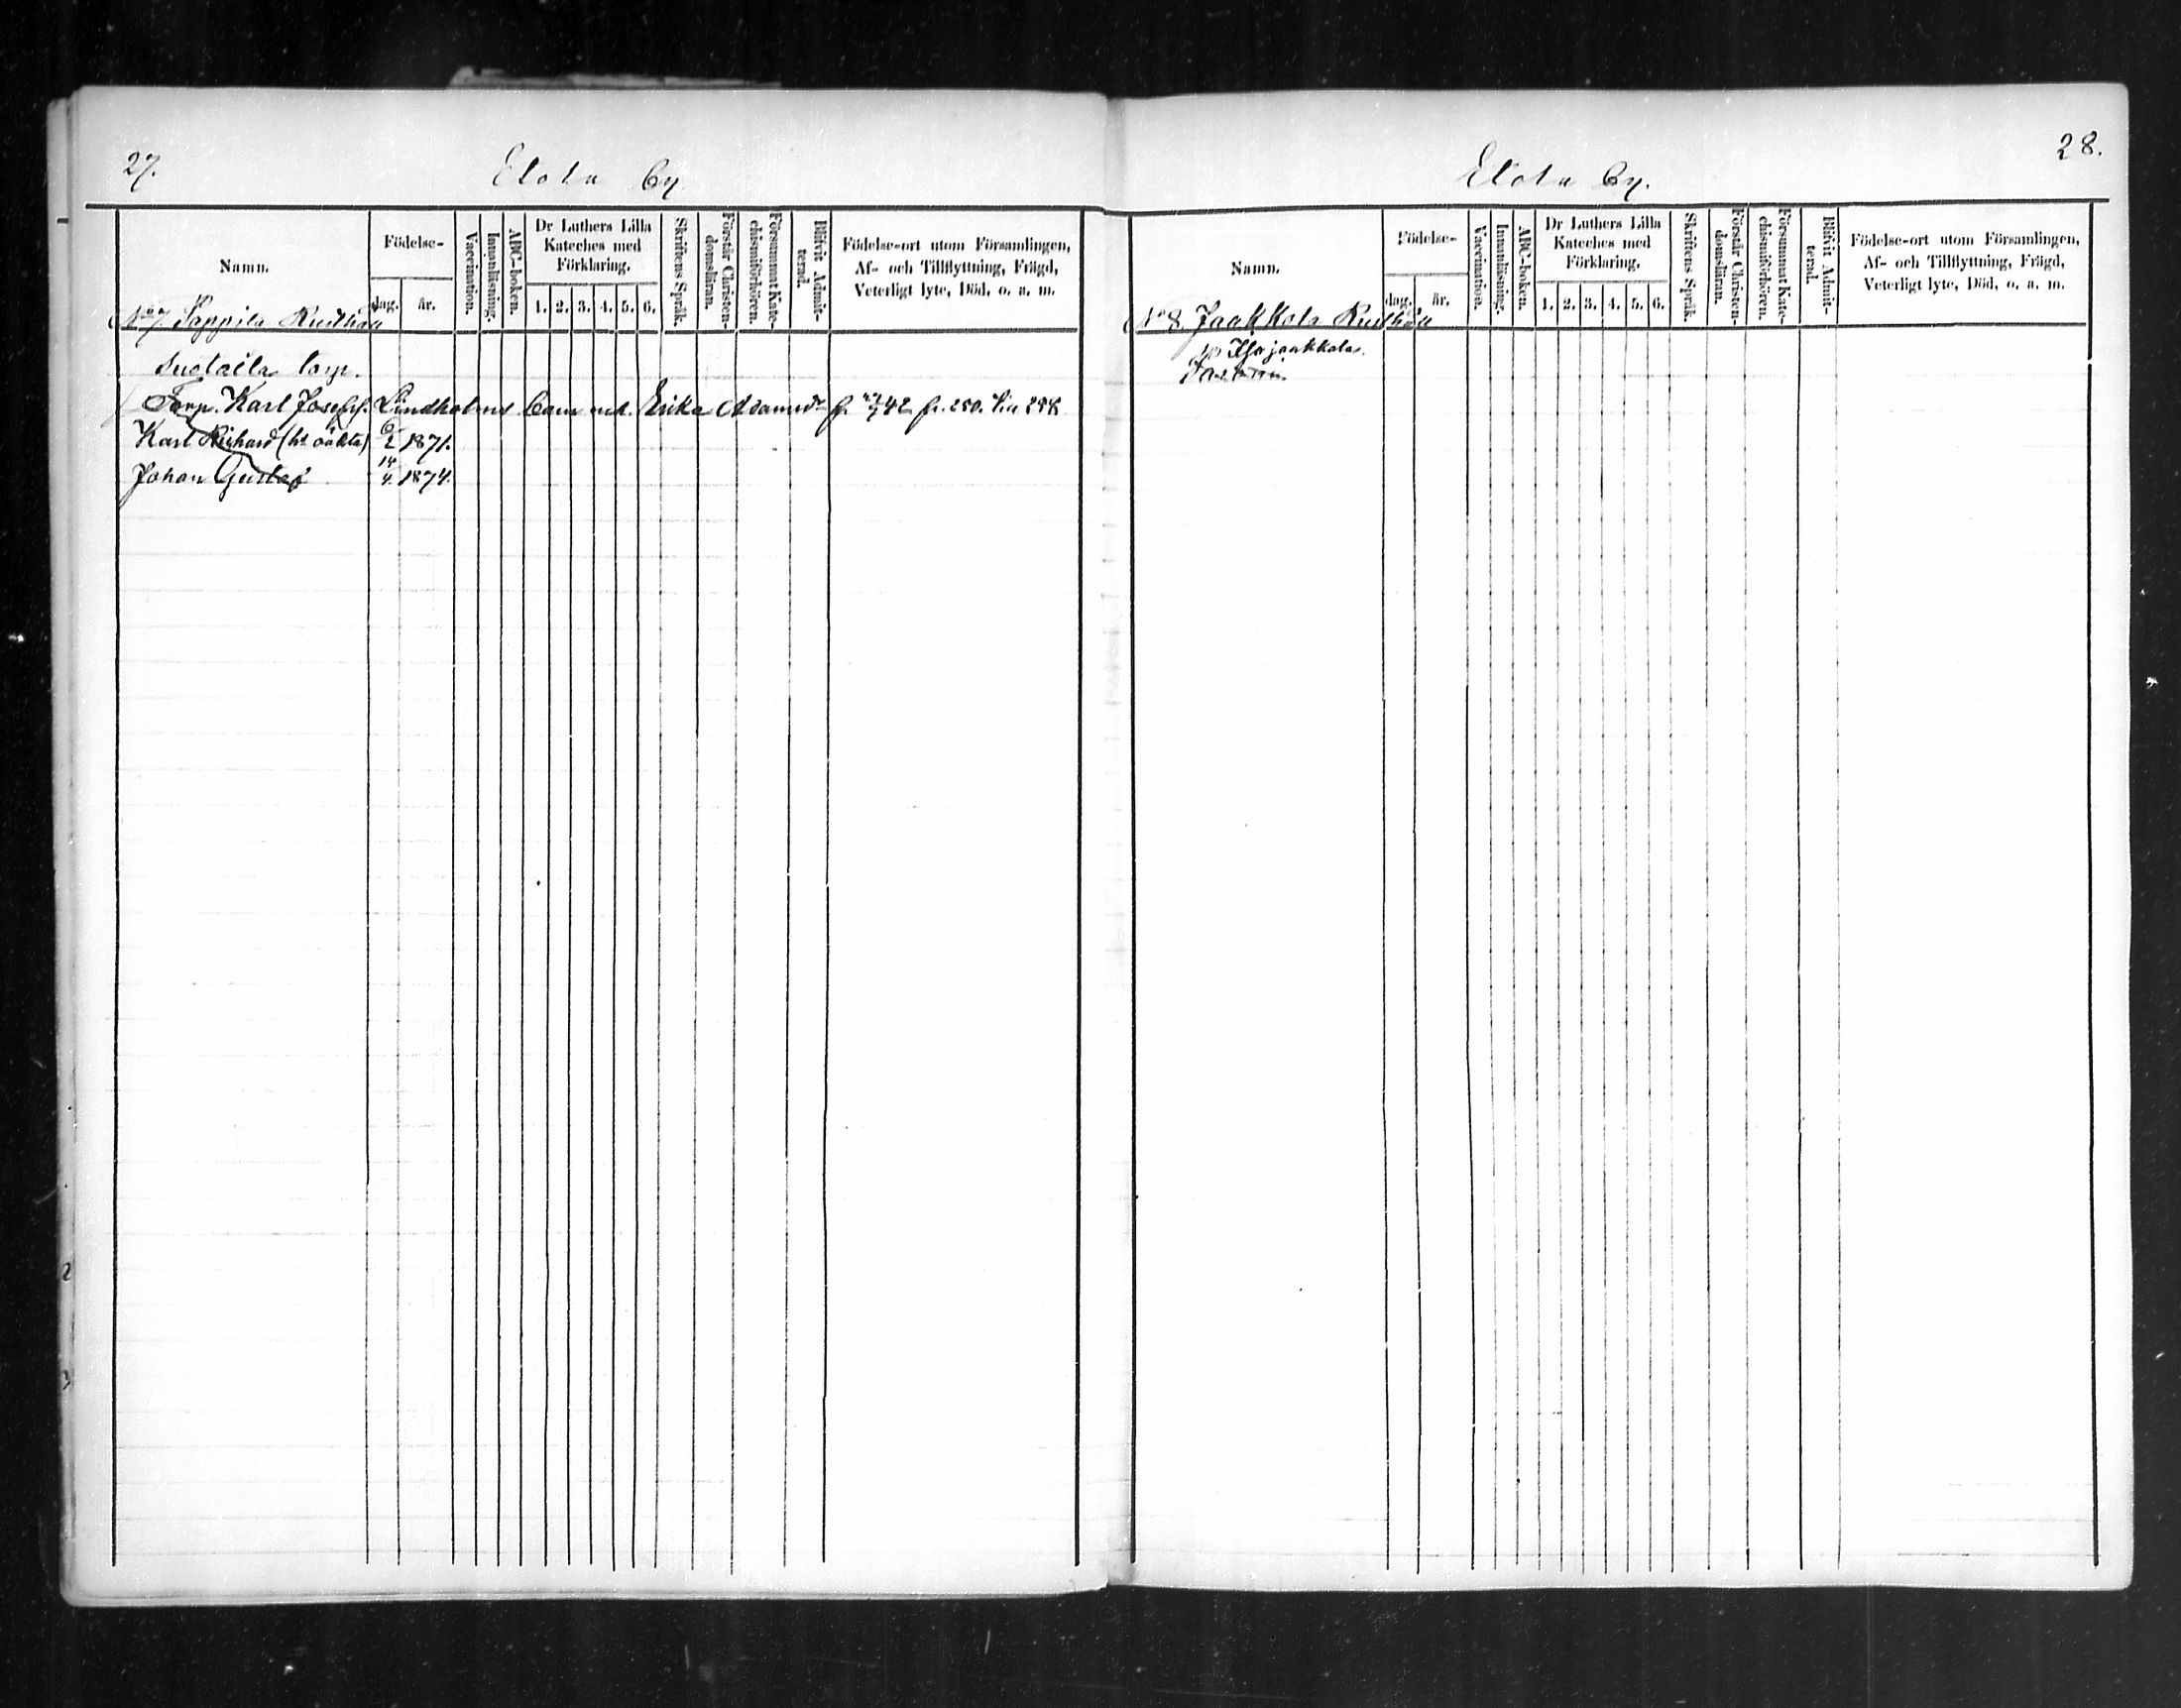 27.
Elola by
Namn.
Födelse-
dag.
år.
Vaccination.
Innanläsning.
ABC-boken.
Dr Luthers Lilla
Kateches med
Förklaring.
1. 2. 3. 4. 5. 6.
Skriftens Språk.
Förstår Christen-
domsläran.
Försummat Kate-
chismiförhören.
Blifvit Admit-
terad.
Födelse-ort utom Församlingen,
Af- och Tillflyttning, Frägd,
Veterligt lyte, Död, o. a. m.
No 7. Sappila Rusthåll
torp.
Torp. Karl Josefss. Lindholms barn med Erika Adamsdr
Karl Richard (hs oäkta) 6/2 1871.
Johan Gustaf 14/4 1874.
28.
Elola by.
Namn.
Födelse-
dag.
år.
Vaccination.
Innanläsning.
ABC-boken.
Dr Luthers Lilla
Kateches med
Förklaring.
1. 2. 3. 4. 5. 6.
Skriftens Språk.
Förstår Christen-
domsläran.
Försummat Kate-
chismiförhören.
Blifvit Admit-
terad.
Födelse-ort utom Församlingen,
Af- och Tillflyttning, Frägd,
Veterligt lyte, Död, o. a. m.
No 8. Jaakkola Rusthåll